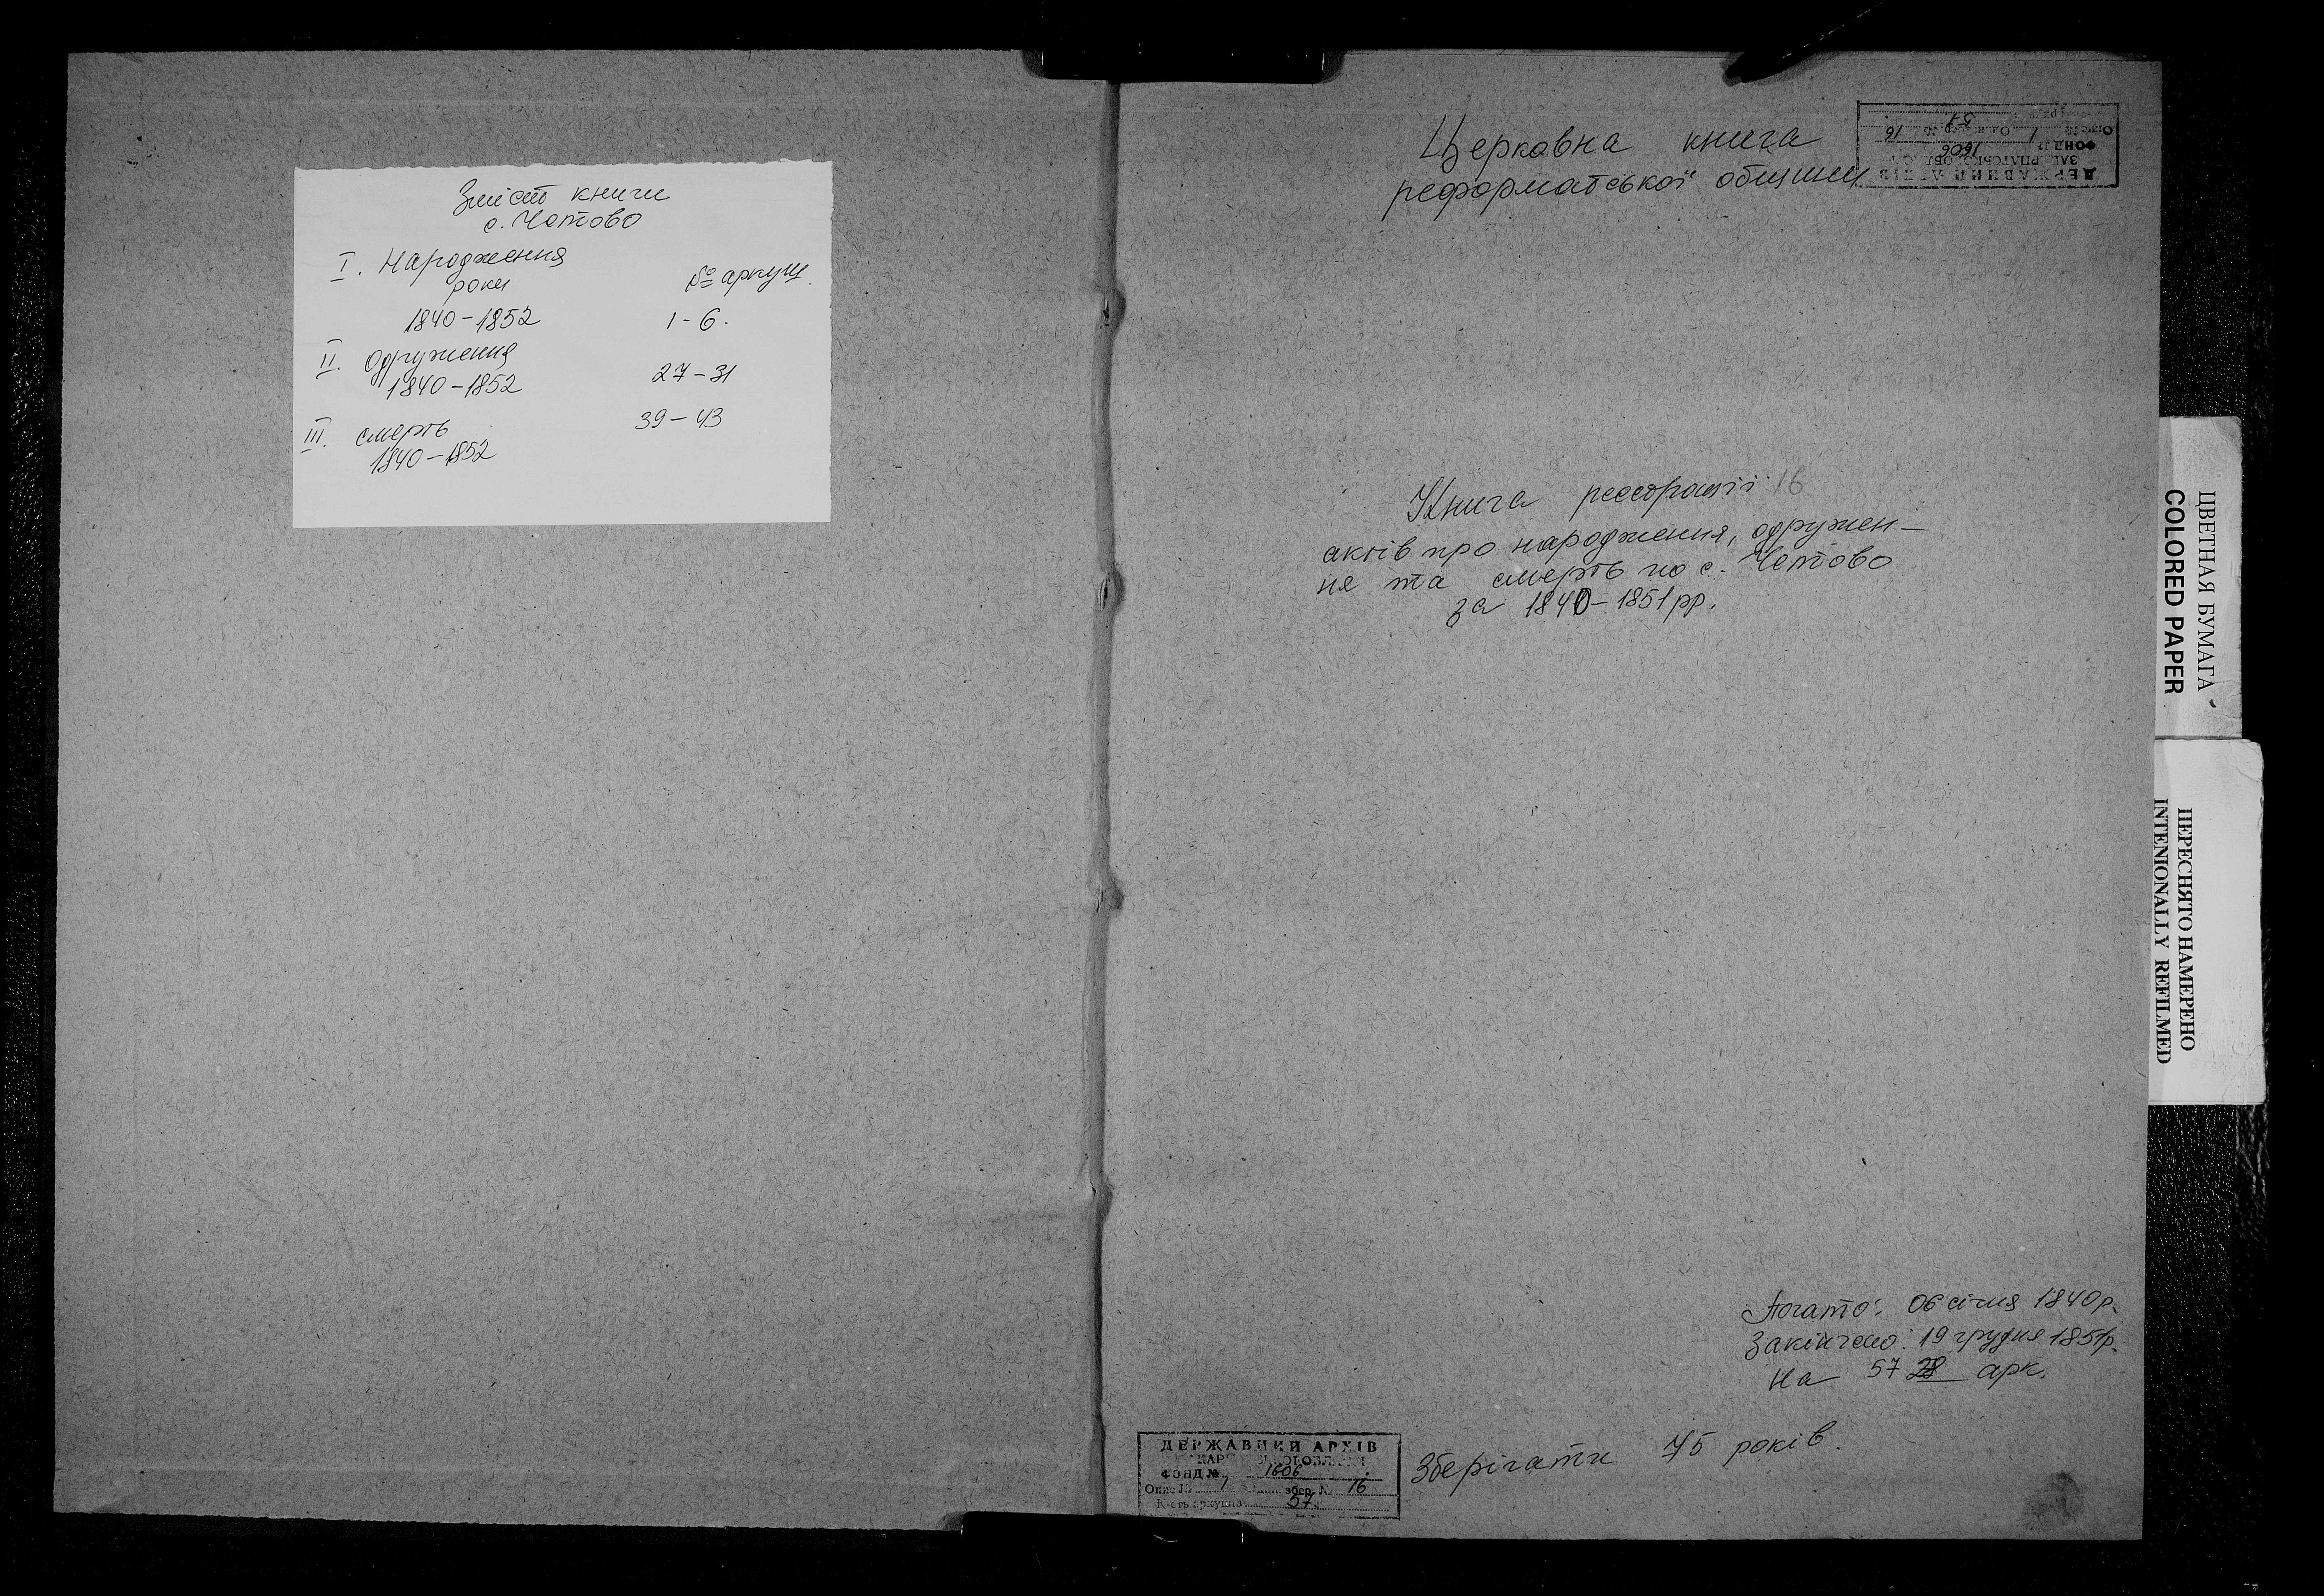 Зміст книги
с. Четово
I. Народження
роки
№ аркуш.
1840-1852
1-6.
II. Одруження
1840-1852
27-31
III. смерть
39-43
1840-1852
Церковна книга
реформатської общини
ДЕРЖАВНИЙ АРХІВ
ФОНД № 1606
Опис № 1 Од. збер. № 16
57
Книга реєстрації 16
актів про народження, одружен-
ня та смерть по с. Четово
за 1840-1851 рр.
Почато: 06 січня 1840 р.
Закінчено: 19 грудня 1851 р.
На 57 28 арк.
Зберігати 75 років.
ДЕРЖАВНИЙ АРХІВ
ФОНД № 1606
Опис № 1 збер. № 16
К-сть аркушів 57
ЦВЕТНАЯ БУМАГА
COLORED PAPER
ПЕРЕСНЯТО НАМЕРЕНО
INTENIONALLY REFILMED